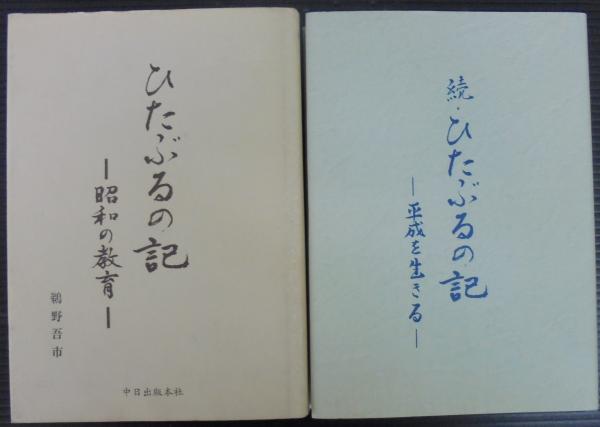 ひたぶるの記
―昭和の教育―
鵜野吾市
中日出版本社
続・ひたぶるの記
―平成を生きる―